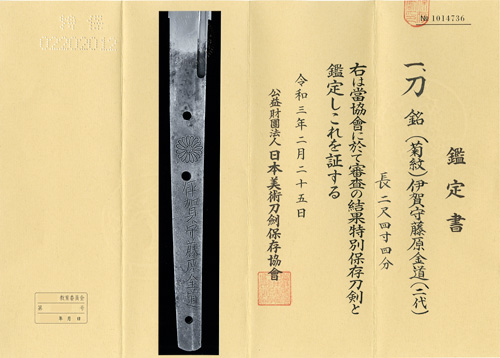 № 1014736
鑑定書
一、刀 銘 (菊紋)伊賀守藤原金道(二代)
長 二尺四寸四分
右は當協會に於て審査の結果特別保存刀剣と
鑑定しこれを証する
令和三年二月二十五日
公益財團法人 日本美術刀剣保存協會
伊賀守藤原金道
特保
教育委員会
第 号
年 月 日